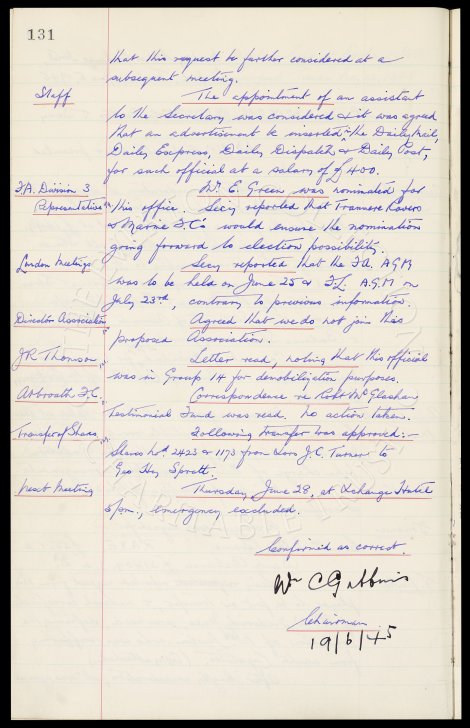 131
that this request be further considered at a
subsequent meeting.
Staff
The appointment of an assistant
to the Secretary was considered & it was agreed
that an advertisement be inserted in the Daily Mail,
Daily Express, Daily Dispatch & Daily Post,
for such official at a salary of £400.
F.A. Division 3
Representative
Mr. E. Green was nominated for
this office. Secy reported that Tranmere Rovers
& Marine F.C's would ensure the nomination
going forward to election possibility.
London Meetings
Secy reported that the F.A. A.G.M
was to be held on June 25 & F.L. A.G.M on
July 23rd, contrary to previous information.
Director Association
Agreed that we do not join this
proposed Association.
J.R. Thomson
Letter read, noting that this official
was in Group 14 for demobilization purposes.
Arbroath F.C.
Correspondence re Robt McGlashan
Testimonial Fund was read. No action taken.
Transfer of Shares
Following transfer was approved:-
Shares No. 2423 & 1173 from J.C. Turner to
Geo Hy Spratt.
Next Meeting
Thursday, June 28, at Exchange Hotel
5pm., emergency excluded.
Confirmed as correct.
Wm C Gibbins
Chairman
19/6/45